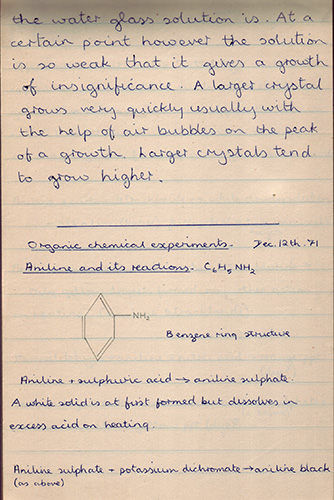 the water glass solution is. At a
certain point however the solution
is so weak that it gives a growth
of insignificance. A larger crystal
grows very quickly usually with
the help of air bubbles on the peak
of a growth. Larger crystals tend
to grow higher.
Organic chemical experiments. Dec. 12th. 71
Aniline and its reactions. C₆H₅NH₂
NH₂
Benzene ring structure
Aniline + sulphuric acid → aniline sulphate.
A white solid is at first formed but dissolves in
excess acid on heating.
Aniline sulphate + potassium dichromate → aniline black
(as above)